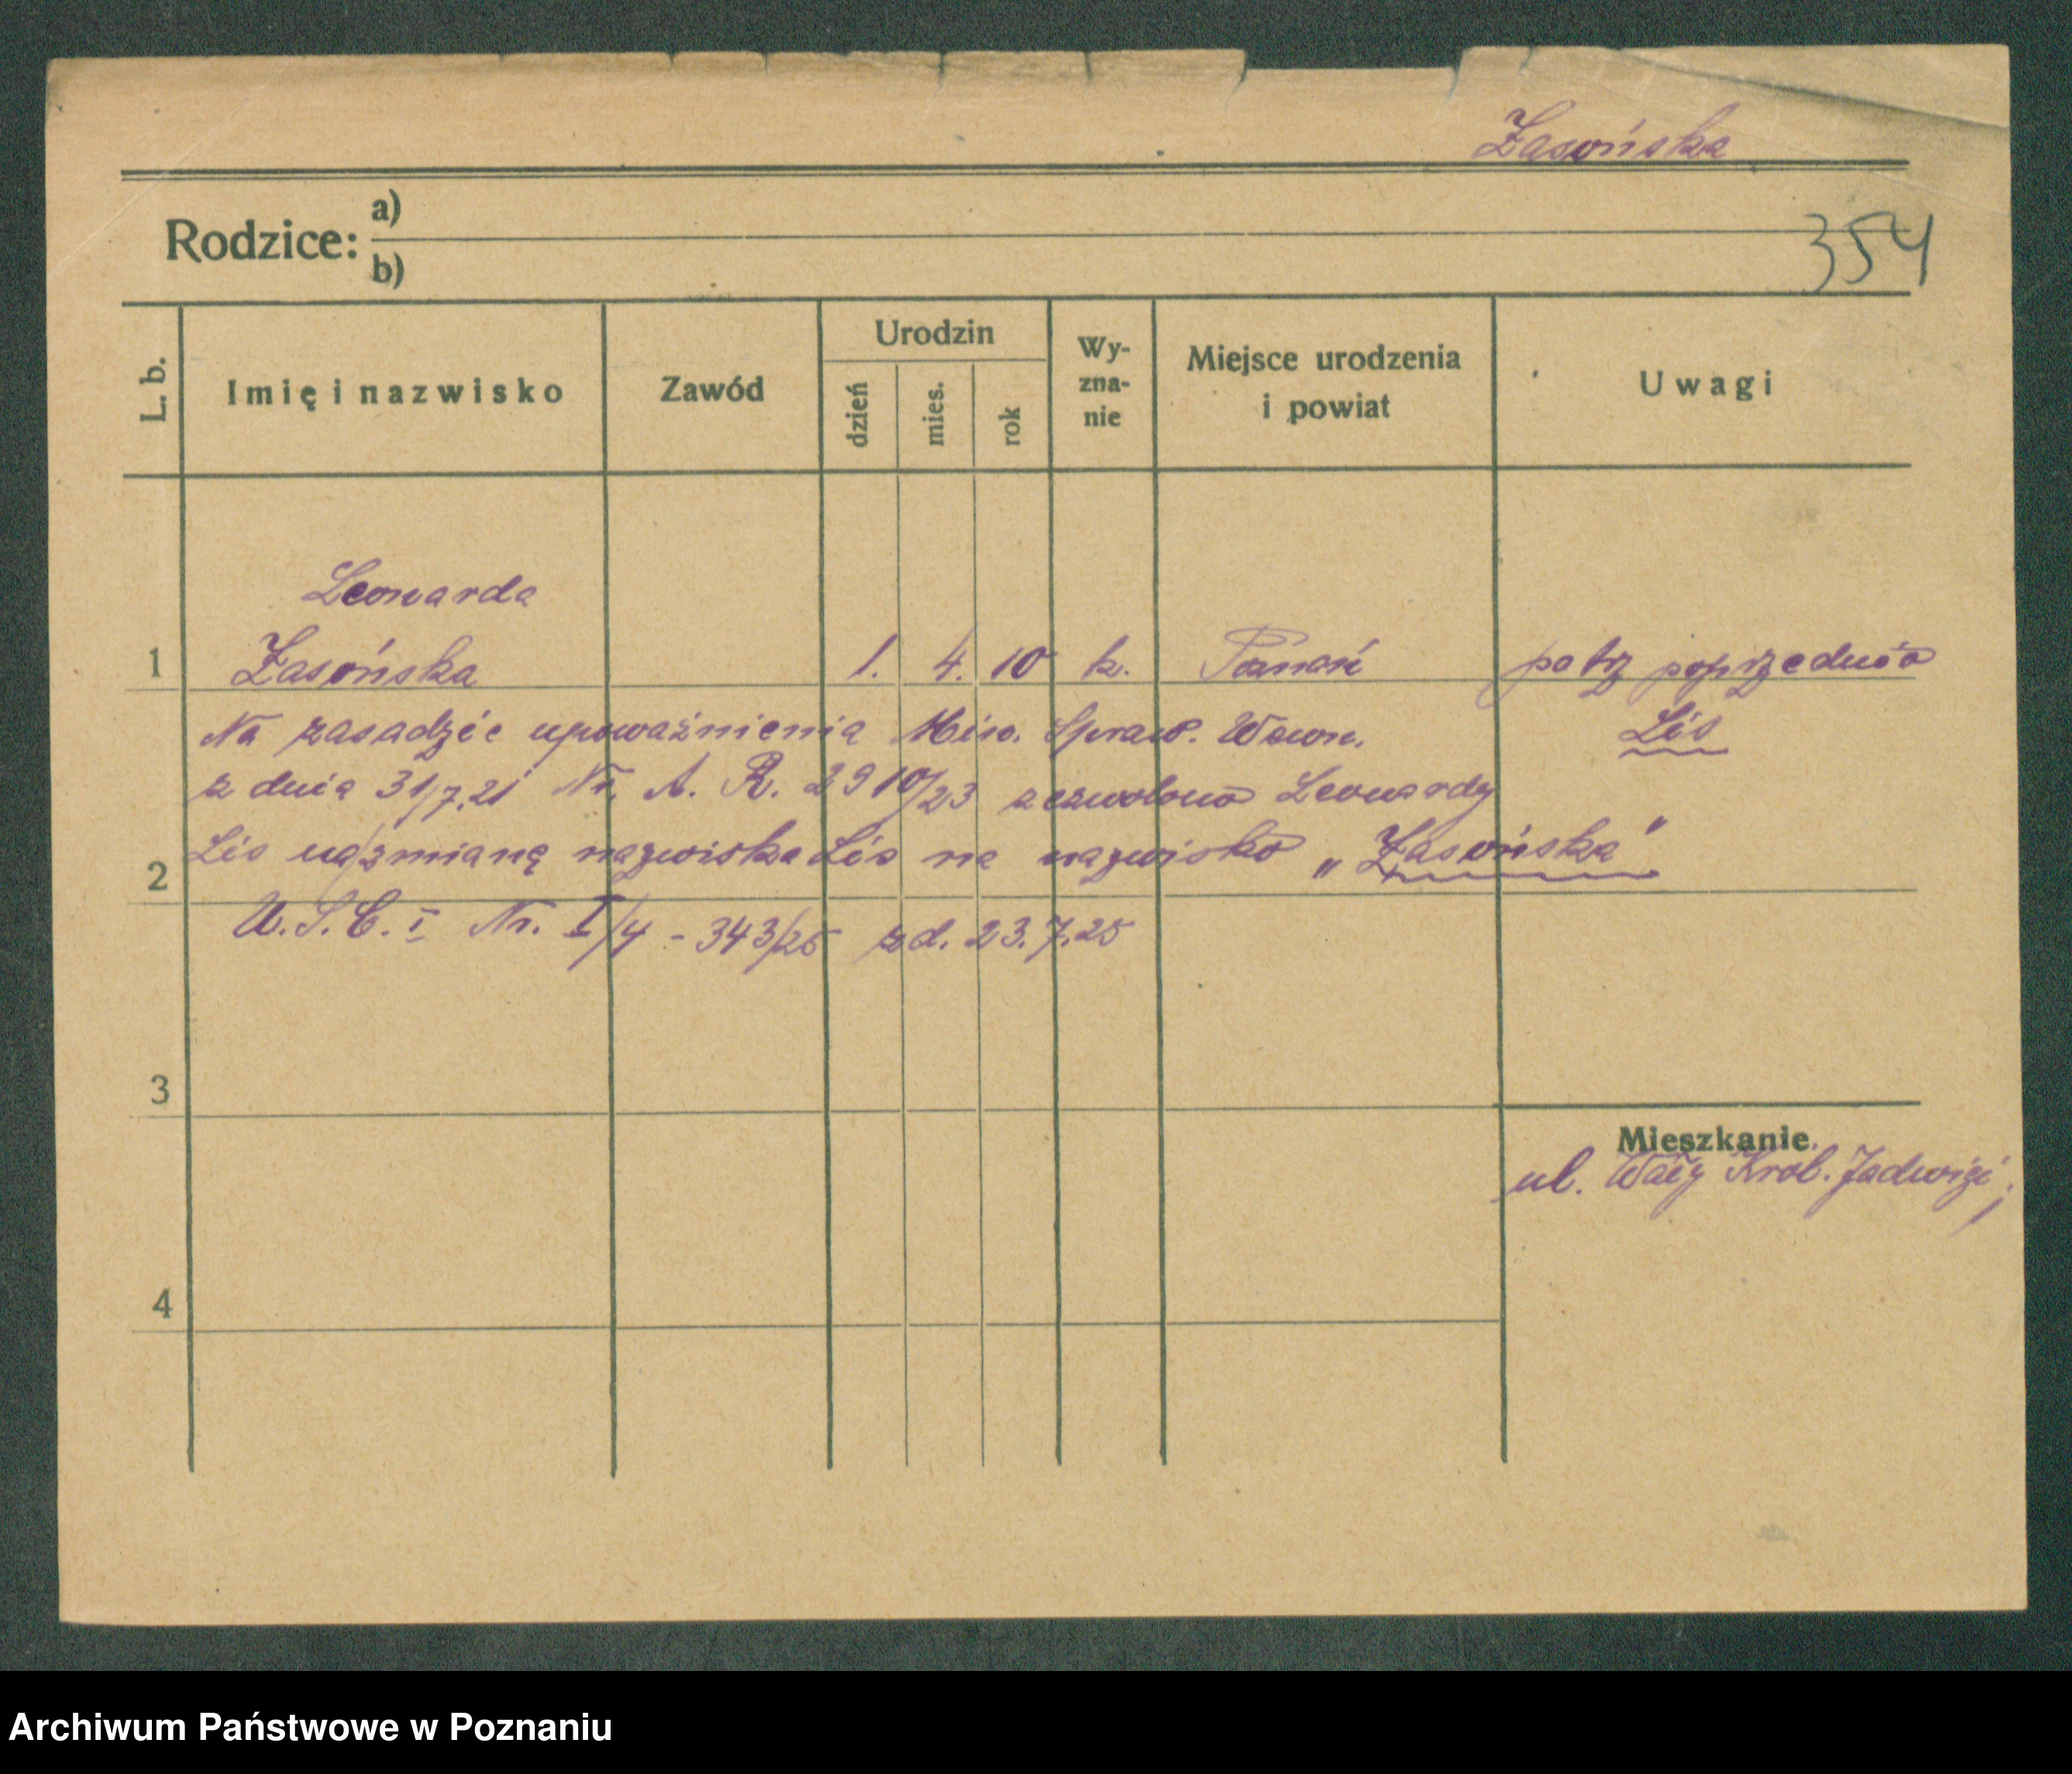 Zasońska
Rodzice: a)
b)
354
L. b.
Imię i nazwisko
Zawód
Urodzin
dzień
mies.
rok
Wy-
zna-
nie
Miejsce urodzenia
i powiat
Uwagi
Leonarda
1 Zasońska 1. 4. 10 k. Poznań patrz poprzednio
Lis
Na zasadzie upoważnienia Min. Spraw. Wewn.
z dnia 31/7.21 Nr. A. R. 2910/23 zezwolono Leonardy
2 Lis na zmianę nazwiska Lis na nazwisko „Zasońska"
U.S.C. I Nr. I/4 - 343/25 z d. 23.7.25
3
Mieszkanie
ul. Wały Król. Jadwigi
4
Archiwum Państwowe w Poznaniu